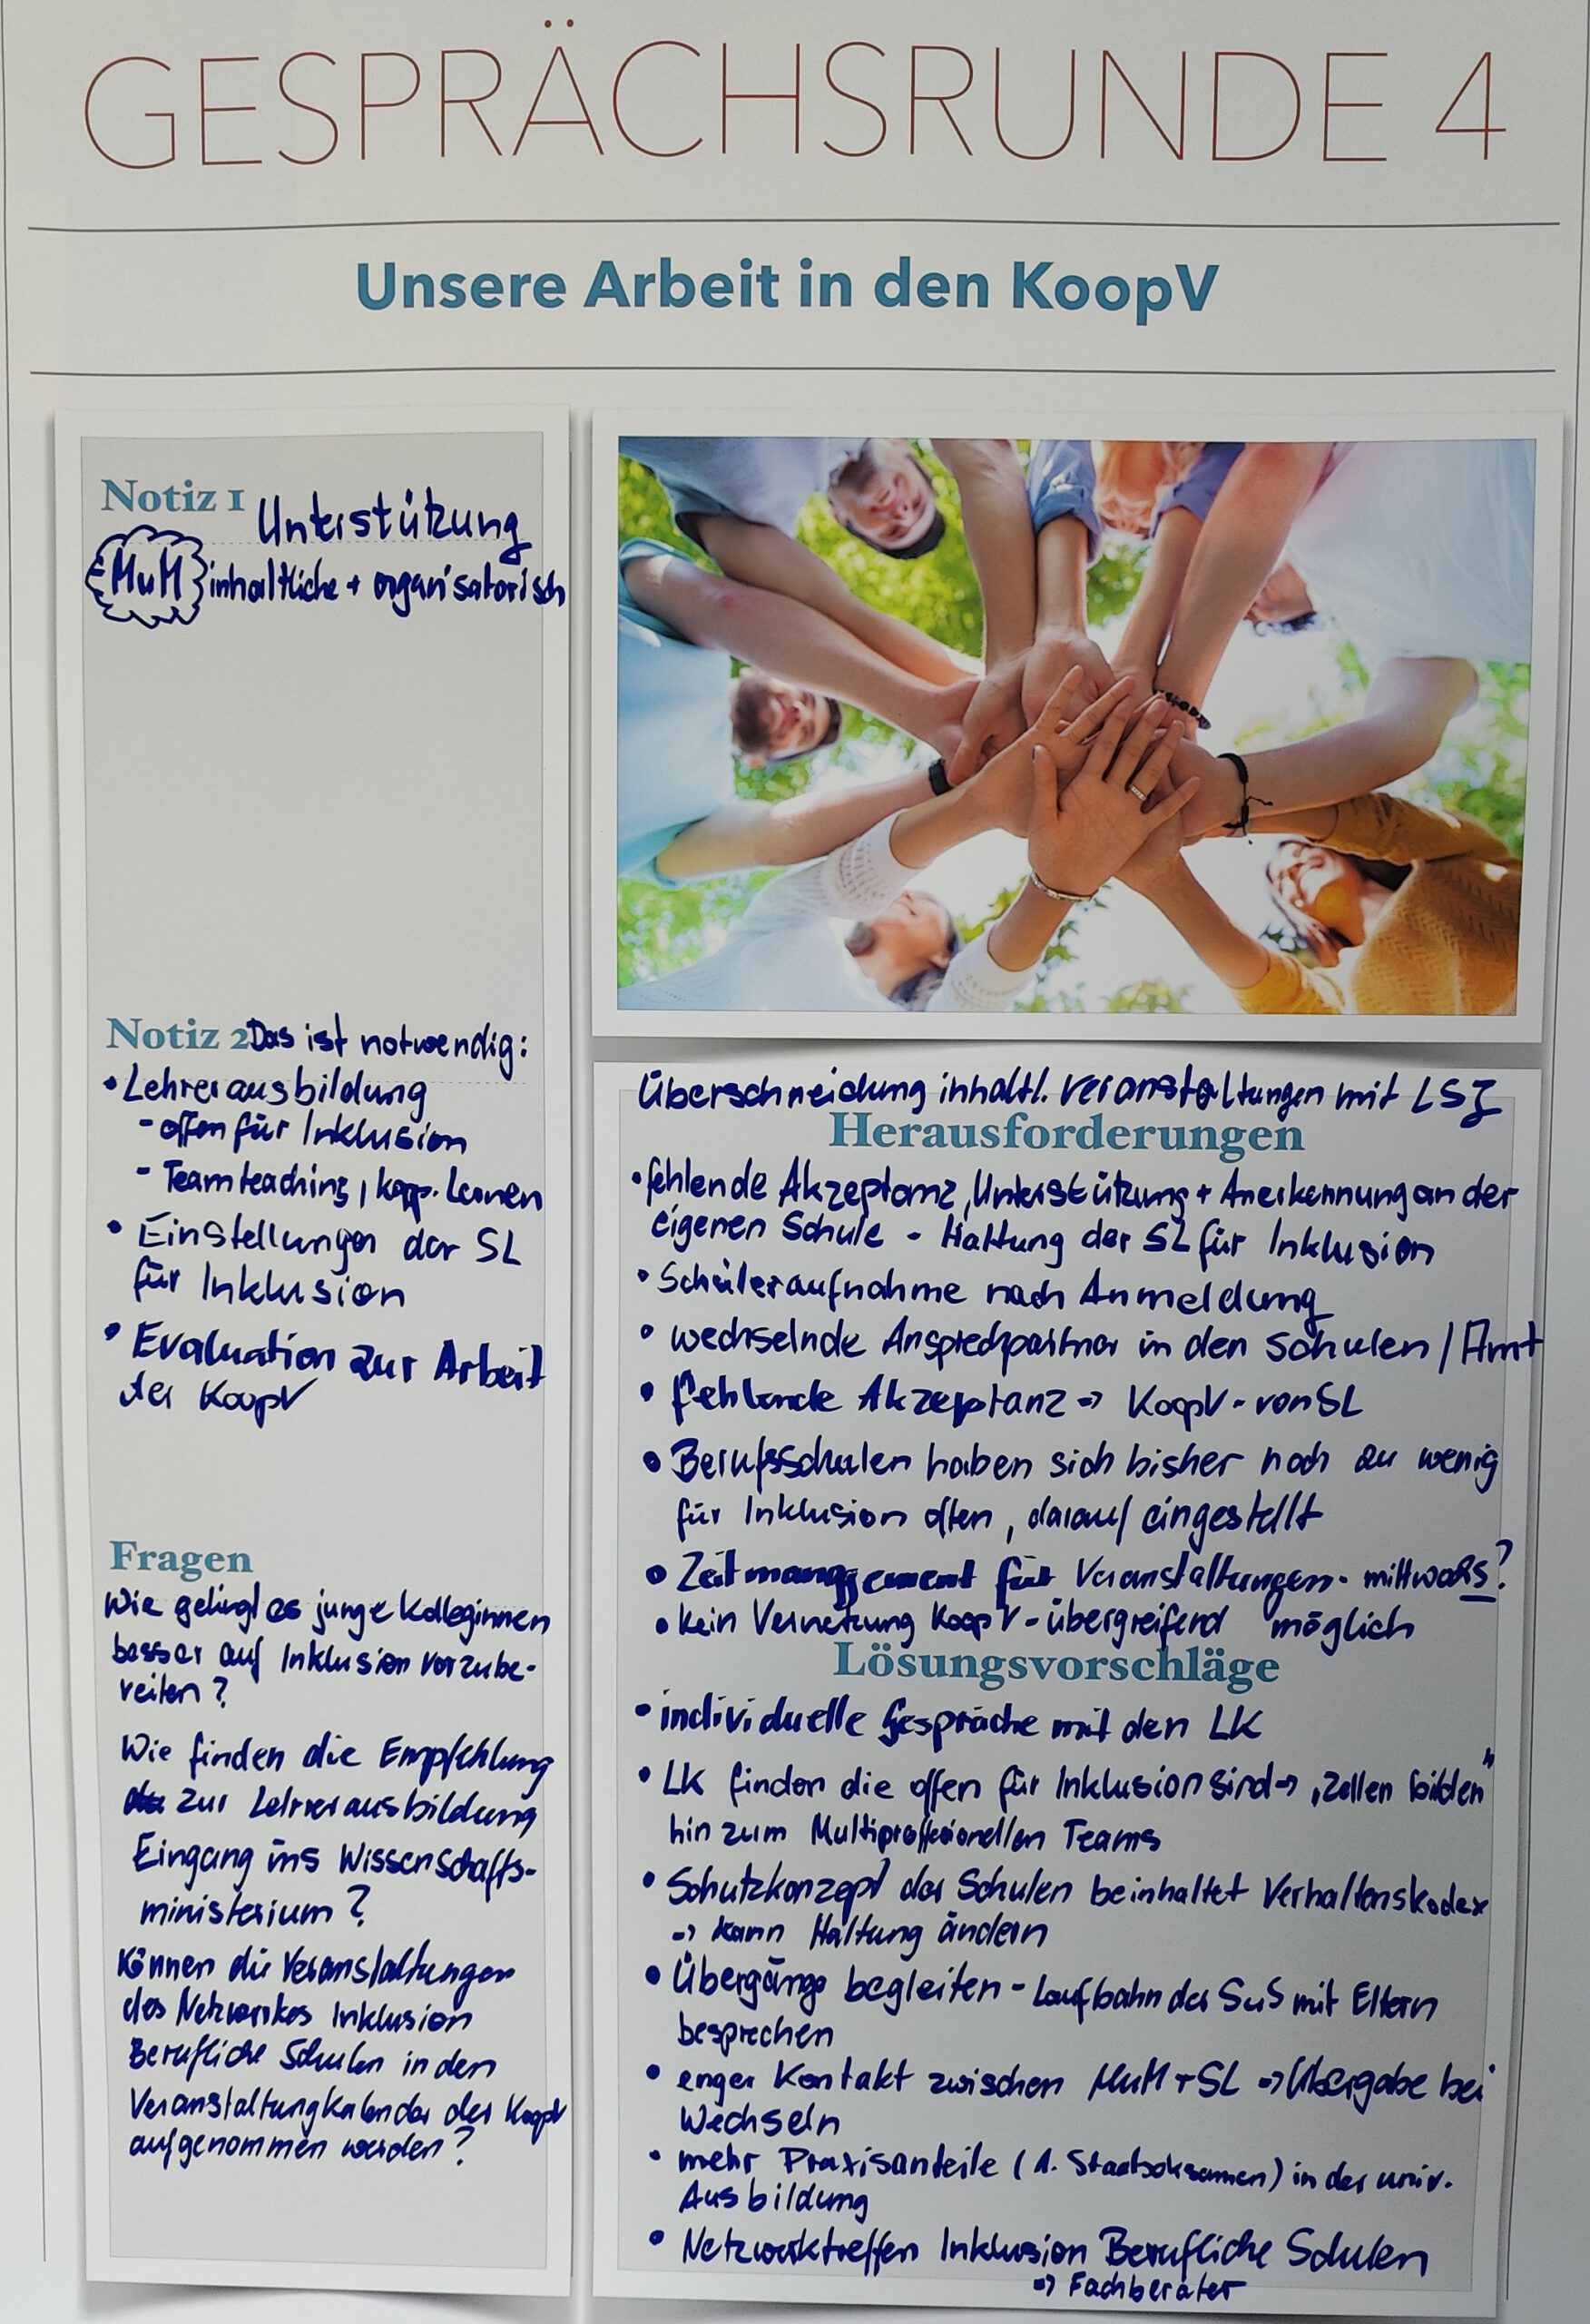 GESPRÄCHSRUNDE 4
Unsere Arbeit in den KoopV
Notiz 1 Unterstützung
MuM inhaltliche + organisatorisch
Notiz 2 Das ist notwendig:
• Lehrerausbildung
- offen für Inklusion
- Teamteaching, koop. Lernen
• Einstellungen der SL
für Inklusion
• Evaluation zur Arbeit
der KoopV
Fragen
Wie gelingt es junge Kolleginnen
besser auf Inklusion vorzube-
reiten ?
Wie finden die Empfehlung
zur Lehrerausbildung
Eingang ins Wissenschafts-
ministerium ?
Können die Veranstaltungen
des Netzwerkes Inklusion
Berufliche Schulen in den
Veranstaltungkalender der KoopV
aufgenommen werden ?
Überschneidung inhaltl. Veranstaltungen mit LSZ
Herausforderungen
• fehlende Akzeptanz, Unterstützung + Anerkennung an der
eigenen Schule - Haltung der SL für Inklusion
• Schüleraufnahme nach Anmeldung
• wechselnde Ansprechpartner in den Schulen / Amt
• fehlende Akzeptanz => KoopV - von SL
• Berufsschulen haben sich bisher noch zu wenig
für Inklusion offen, darauf eingestellt
• Zeitmanagement für Veranstaltungen - mittwochs?
• kein Vernetzung KoopV - übergreifend möglich
Lösungsvorschläge
• individuelle Gespräche mit den LK
• LK finden die offen für Inklusion sind => „Zellen bilden"
hin zum Multiprofessionellen Teams
• Schutzkonzept der Schulen beinhaltet Verhaltenskodex
=> kann Haltung ändern
• Übergänge begleiten - Laufbahn der SuS mit Eltern
besprechen
• enger Kontakt zwischen MuM + SL => Übergabe bei
Wechseln
• mehr Praxisanteile (1. Staatsexamen) in der univ.
Ausbildung
• Netzwerktreffen Inklusion Berufliche Schulen
=> Fachberater